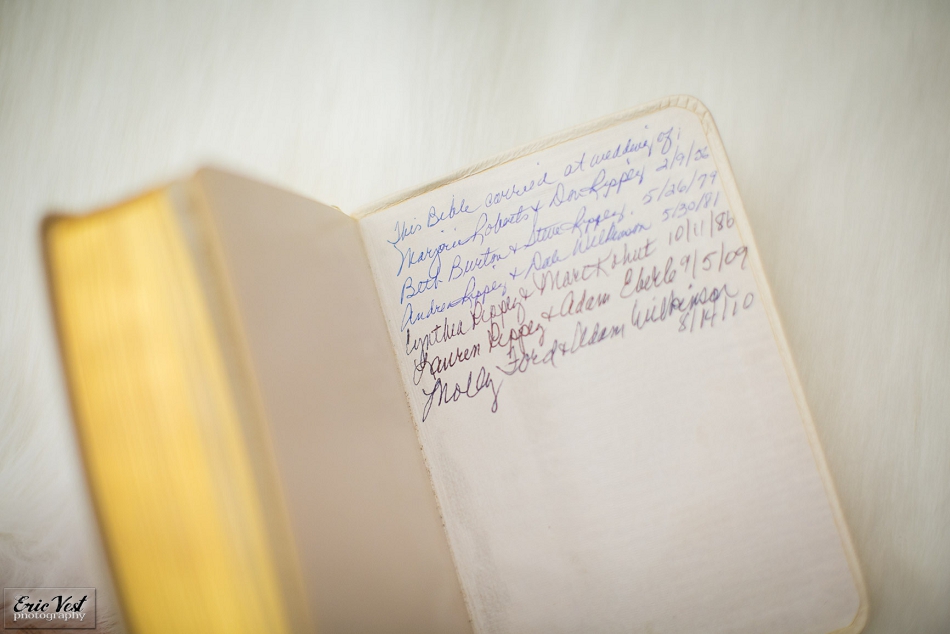 This Bible carried at wedding of:
Marjorie Roberts & Don Rippey 2/9/56
Beth Burton & Steve Rippey. 5/26/79
Andrea Rippey & Dale Wilkinson 5/30/81
Cynthia Rippey & Mark Hut 10/11/86
Lauren Rippey & Adam Eberle 9/5/09
Molly Ford & Adam Wilkinson
8/14/10
Eric Vest
photography